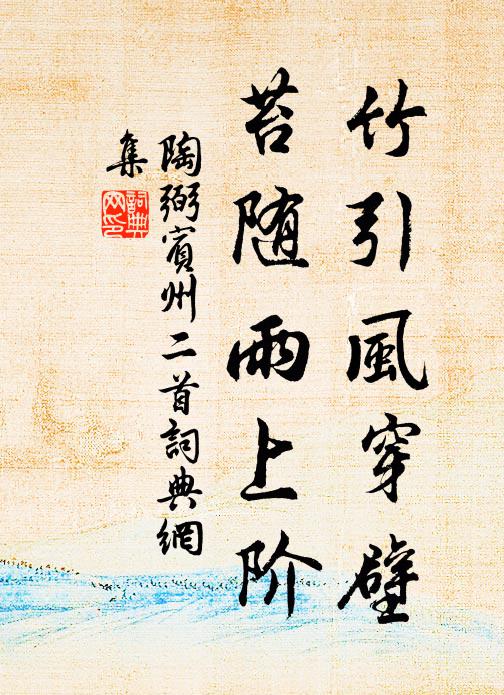 竹引風穿壁
苔随雨上阶
陶弼賓州二首詞典網
集
詞典
网印